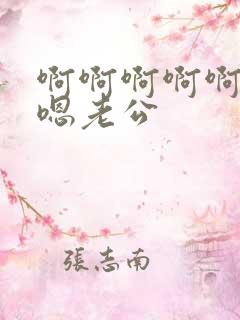 啊啊啊啊啊
嗯老公
張志南